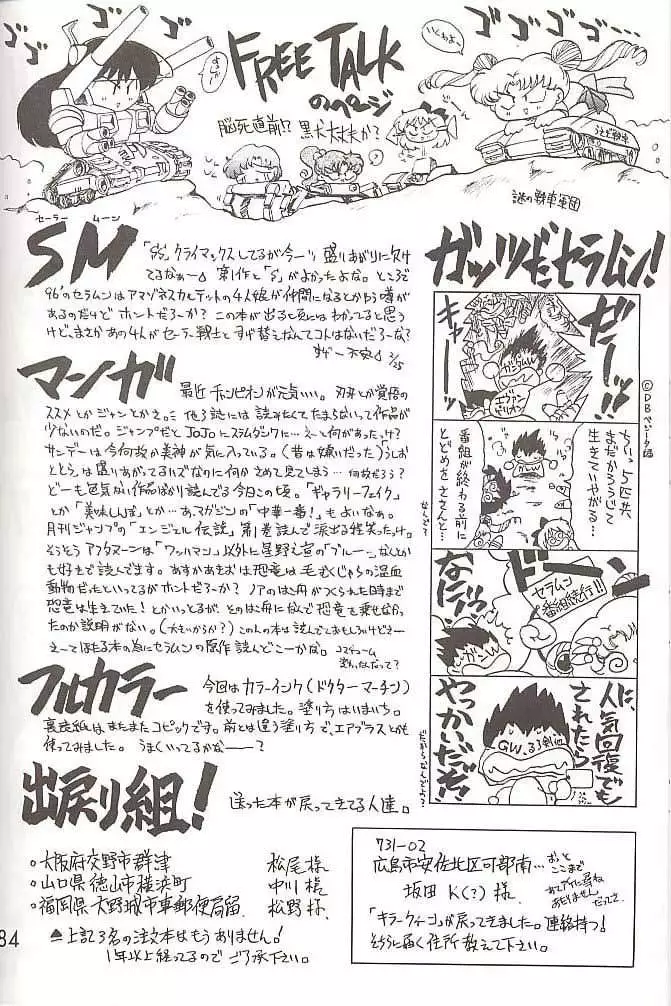 ゴゴゴ
FREE TALK
のページ
脳死直前!? 黒犬大丈夫か?
ゴゴゴ
謎の戦車軍団
セーラー ムーン
SM
「SS」クライマックスしてるが今一ツ盛りあがりに欠け
てるなぁー 第1作と「S」がよかったよな。ところで
96'のセラムンはアマゾネスカルテットの4人娘が仲間になるとかゆう噂が
あるのだけど ホントだろーか? この本が出る頃にはわかってると思う
けど、まさかあの4人がセーラー戦士とすげ替えなんてコトはないだろーな?
すげー不安 2/25
マンガ
最近チャンピオンが元気いい。刃牙とか覚悟の
ススメとかジャンとかさ。 他3誌には読みたくてたまらないって作品が
少ないのだ。ジャンプだとJoJoにスラムダンクに…えーと何があったっけ?
サンデーは今何故か美神が気に入っている。(昔は嫌いだった)うしお
ととらは盛りあがってるハズなのに何かさめて見てしまう…何故だろう?
どーも色気がない作品ばかり読んでる今日この頃。「ギャラリーフェイク」
とか「美味しんぼ」とか…あ、マガジンの「中華一番!」もよいなぁ。
月刊ジャンプの「エンジェル伝説」第1巻読んで涙出る程笑ったっけ。
そうそうアフタヌーンは「ワッハマン」以外に星野之宣の「ブルー
も好きで読んでます。あすかあきおは恐竜は毛むくじゃらの温血
動物だったといってるがホントだろーか? ノアのはこ舟がつくられた時まで
恐竜は生きていた!とかいっとるが、そのはこ舟になんで恐竜を乗せなかっ
たのか説明がない。(大きいからか?)この人の本は読んどておもしろいけどさー
えーてほたる本の為にセラムンの原作読んどこーかな。
フルカラー
今回はカラーインク(ドクターマーチン)
を使ってみました。塗り方はいまいち。
裏表紙はまたまたコピックです。前とは違う塗り方で、エアブラスとかも
使ってみました。うまくいってるかなー?
出戻り組!
送った本が戻ってきてる人達。
。大阪府交野市郡津 松尾様
。山口県徳山市横浜町 中川様
。福岡県大野城市東郵便局留 松野様
▲上記3名の注文本はもうありません!
1年以上経ってるのでご了承下さい。
84
ガッツだセラムン!
©DBベジータ編
ゼーッ!!
キャー
ガンダムW
エヴァンゲリオン
ちいっ5匹共
まだかろうじて
生きていやがる…
番組が終わる前に
とどめをささんと…
なんで?
ドーン
セラムン
番組続行!!
なにィッ!
GW.るろ剣他
人気回復でも
されたら
やっかいだぞ!
だからなんでよ?
731-02
広島市安佐北区可部南… おっと
ここまで
坂田 K(?) 様
「キラークィーン」が戻ってきました。連絡待つ!
そちらに届く住所教えて下さい。